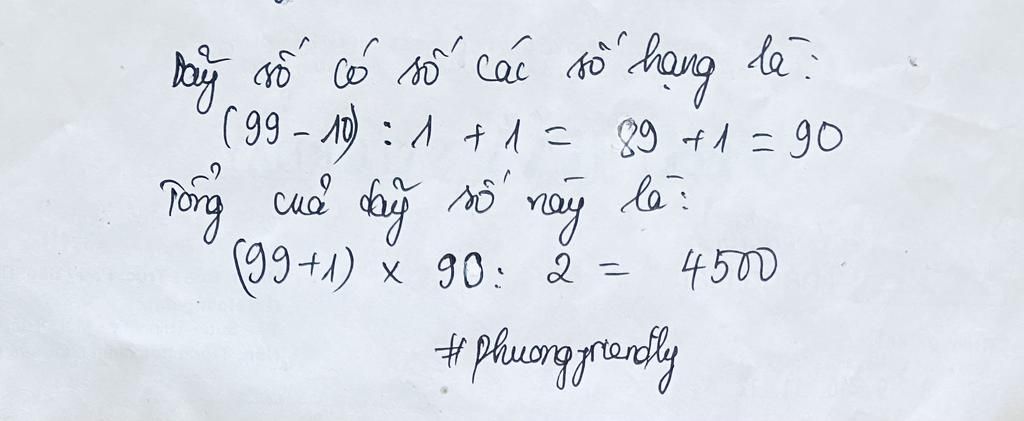 Dãy số có số các số hạng là:
(99 - 10) : 1 + 1 = 89 + 1 = 90
Tổng cuả dãy số này là:
(99+1) x 90 : 2 = 4500
#phuongfriendly